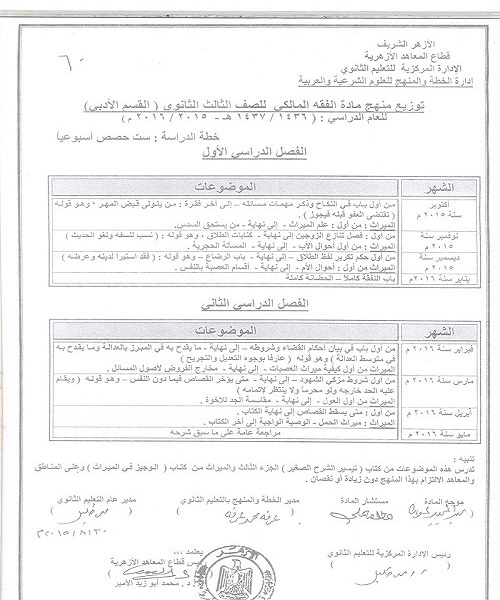 الأزهر الشريف
قطاع المعاهد الأزهرية
الإدارة المركزية للتعليم الثانوي
إدارة الخطة والمنهج للعلوم الشرعية والعربية
توزيع منهج مادة الفقه المالكي للصف الثالث الثانوي ( القسم الأدبي )
للعام الدراسي : ( ١٤٣٦ / ١٤٣٧ هـ - ٢٠١٥ / ٢٠١٦ م )
خطة الدراسة : ست حصص أسبوعياً
الفصل الدراسي الأول
الشهر الموضوعات
أكتوبر سنة ٢٠١٥ م من أول باب في النكاح وذكر مهمات مسائله – إلى آخر فقرة : من يتولى قبض المهر ، وهو قوله
( تقتضي العفو قبله فيجوز ) .
الميراث : من أول : علم الميراث - إلى نهاية - من يستحق السدس.
نوفمبر سنة ٢٠١٥ م من أول : فصل تنازع الزوجين إلى نهاية - كنايات الطلاق ، وهو قوله : ( نسب للسفه ولغو الحديث )
الميراث : من أول أحوال الأب - إلى نهاية - المسألة الحجرية .
ديسمبر سنة ٢٠١٥ م من أول حكم تكرير لفظ الطلاق – إلى نهاية - باب الرضاع – وهو قوله : ( فقد استبرأ لدينه وعرضه )
الميراث : من أول : أحوال الأم - إلى نهاية - أقسام العصبة بالنفس.
يناير سنة ٢٠١٦ م باب النفقة كاملاً – الحضانة كاملة
الفصل الدراسي الثاني
الشهر الموضوعات
فبراير سنة ٢٠١٦ م من أول باب في بيان أحكام القضاء وشروطه – إلى نهاية - ما يقدح به في المبرز بالعدالة وما يقدح به
في متوسط العدالة ) وهو قوله ( عارفاً بوجوه التعديل والتجريح )
الميراث من أول كيفية ميراث العصبات - إلى نهاية - مخارج الفروض لأصول المسائل .
مارس سنة ٢٠١٦ م من أول شروط مزكي الشهود – إلى نهاية – متى يؤخر القصاص فيما دون النفس – وهو قوله ( ويقام
عليه الحد خارجه ولو محرماً ولا ينتظر لإتمامه )
الميراث من أول العول - إلى نهاية - مقاسمة الجد للإخوة .
أبريل سنة ٢٠١٦ م من أول : متى يسقط القصاص إلى نهاية الكتاب .
الميراث : ميراث الحمل - الوصية الواجبة إلى آخر الكتاب .
مايو سنة ٢٠١٦ م مراجعة عامة على ما سبق شرحه
تنبيه :
تدرس هذه الموضوعات من كتاب ( تيسير الشرح الصغير ) الجزء الثالث والميراث من كتاب ( الوجيز في الميراث ) وعلى المناطق
والمعاهد الالتزام بهذا المنهج دون زيادة أو نقصان .
موجه المادة مستشار المادة مدير الخطة والمنهج بالتعليم الثانوي مدير عام التعليم الثانوي
٢٠١٥/٨/٣٠ م
رئيس الإدارة المركزية للتعليم الثانوي يعتمد ،،،
رئيس قطاع المعاهد الأزهرية
د . محمد أبو زيد الأمير